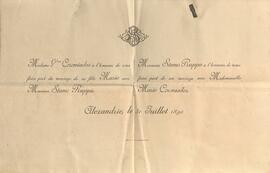 Madame Vve Cosmiados a l'honneur de vous
faire part du mariage de sa fille Marie avec
Monsieur Stamo Rappo.
Monsieur Stamo Rappo a l'honneur de vous
faire part de son mariage avec Mademoiselle
Marie Cosmiados.
Alexandrie, le Juillet